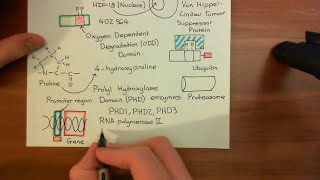 HIF-1β (Nucleus)
402 564
Oxygen Dependent
Degradation (ODD)
Domain
Von Hippel-
Lindau Tumor
Suppressor
Protein
Ubiquitin
Proline
4-hydroxyproline
Prolyl Hydroxylase
Domain (PHD) enzymes
Proteasome
PHD1, PHD2, PHD3
Promoter region
RNA polymerase II
Gene